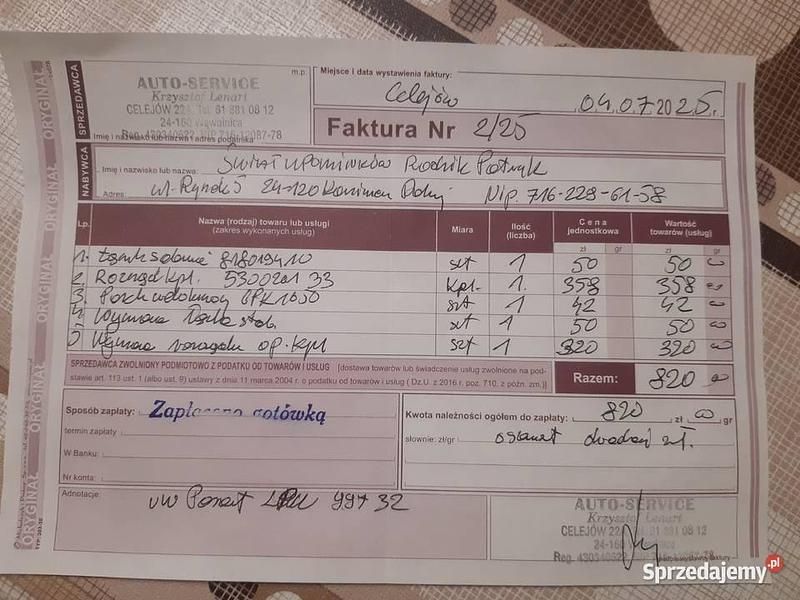 ORYGINAŁ
SPRZEDAWCA
m.p.
AUTO-SERVICE
Krzysztof Lenart
CELEJÓW 22A, Tel. 81 881 08 12
24-160 Wąwolnica
Imię i nazwisko lub nazwa i adres podatnika
Miejsce i data wystawienia faktury:
Celejów 04.07.2025r.
Faktura Nr 2/25
NABYWCA
Imię i nazwisko lub nazwa: Świat upominków Rodzik Patryk
Adres: ul. Rynek 5 24-120 Kazimierz Dolny Nip. 716-228-61-58
Lp. Nazwa (rodzaj) towaru lub usługi (zakres wykonanych usług) Miara Ilość (liczba) Cena jednostkowa Wartość towarów (usług)
zł gr zł gr
1. szt 1 50 50 00
2. Rozrząd kpl. 5300201 33 kpl. 1. 358 358 00
3. 6PK1050 szt 1 42 42 00
4. Wymiana szt 1 50 50 00
5 Wymiana rozrządu op. kpl szt 1 320 320 00
SPRZEDAWCA ZWOLNIONY PODMIOTOWO Z PODATKU OD TOWARÓW I USŁUG [dostawa towarów lub świadczenie usług zwolnione na pod-
stawie art. 113 ust. 1 (albo ust. 9) ustawy z dnia 11 marca 2004 r. o podatku od towarów i usług ( Dz.U. z 2016 r. poz. 710, z późn. zm.)]
Razem: 820 00
Sposób zapłaty: Zapłacono gotówką
termin zapłaty
W Banku:
Nr konta:
Kwota należności ogółem do zapłaty: 820 zł 00 gr
słownie: zł/gr osiemset dwadzieścia zł.
Adnotacje: VW Passat LPU 99732
AUTO-SERVICE
Krzysztof Lenart
CELEJÓW 22A, Tel. 81 881 08 12
Sprzedajemy.pl